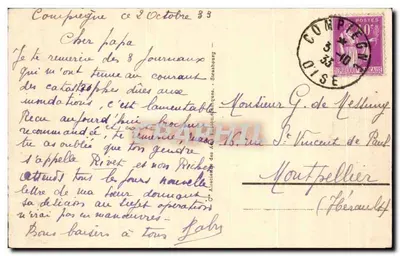 Compiègne ce 2 Octobre 33
Cher papa
Je te remercie des 8 journaux
qui m'ont tenue au courant
des catastrophes dûes aux
inondations, c'est lamentable
Recu aujourd'hui
recommandé te remercie, mais
tu as oublié que ton gendre
s'appelle Rivet et non Richet
attends tous les jours nouvelle
lettre de ma sœur donnant
sa décision au sujet opération
n'irai pas en manœuvres
Bons baisers à tous Gaby
COMPIEGNE
3 -10
33
OISE
POSTES
Monsieur G. de
rue St Vincent de Paul
Montpellier
(Hérault)